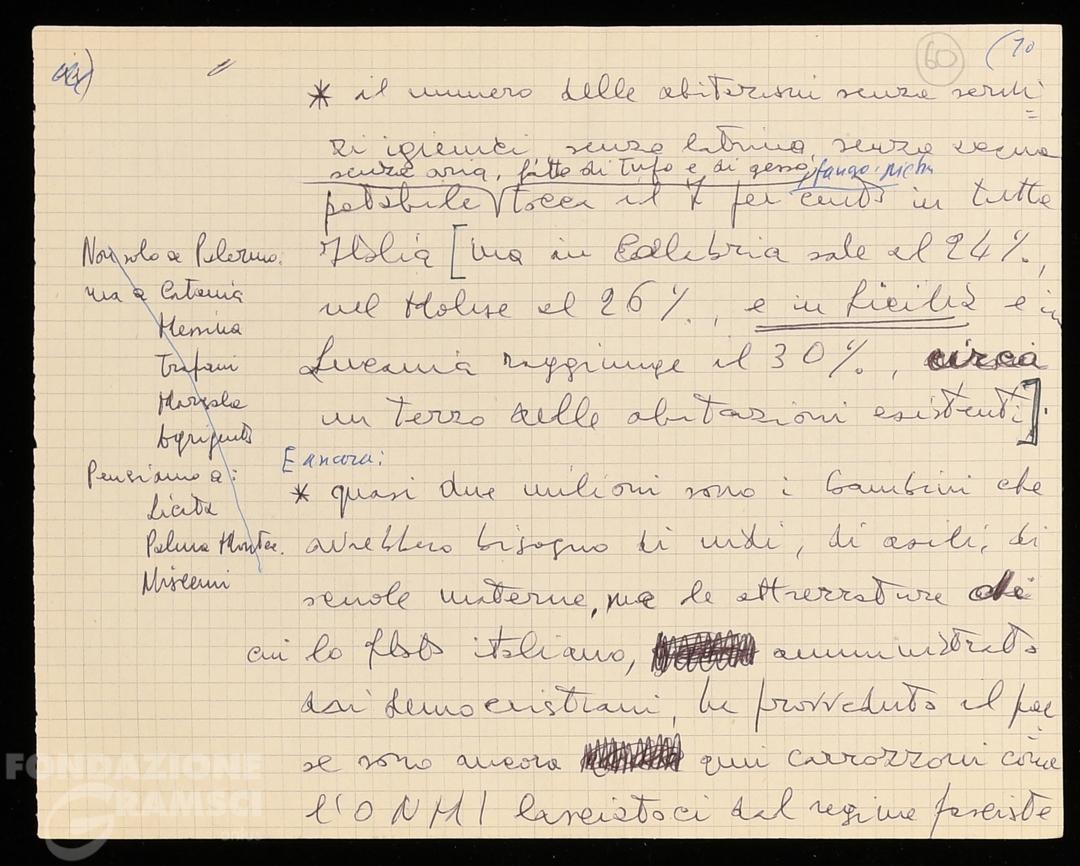 60
(10
* il numero delle abitazioni senza servi=
zi igienici, senza latrina, senza acqua
senza aria, fatte di tufo e di gesso, fango
potabile tocca il 7 per cento in tutta
Italia [ma in Calabria sale al 24%,
nel Molise al 26%, e in Sicilia e in
Lucania raggiunge il 30%, circa
un terzo delle abitazioni esistenti].
Non solo a Palermo.
ma a Catania
Messina
Trapani
Marsala
Agrigento
Pensiamo a:
Licata
Palma Montec.
Niscemi
E ancora:
* quasi due milioni sono i bambini che
avrebbero bisogno di nidi, di asili, di
scuole materne, ma le attrezzature di
cui lo Stato italiano, amministrato
dai democristiani, ha provveduto il pae
se sono ancora quei carrozzoni come
l'ONMI lasciatoci dal regime fascista
FONDAZIONE
GRAMSCI